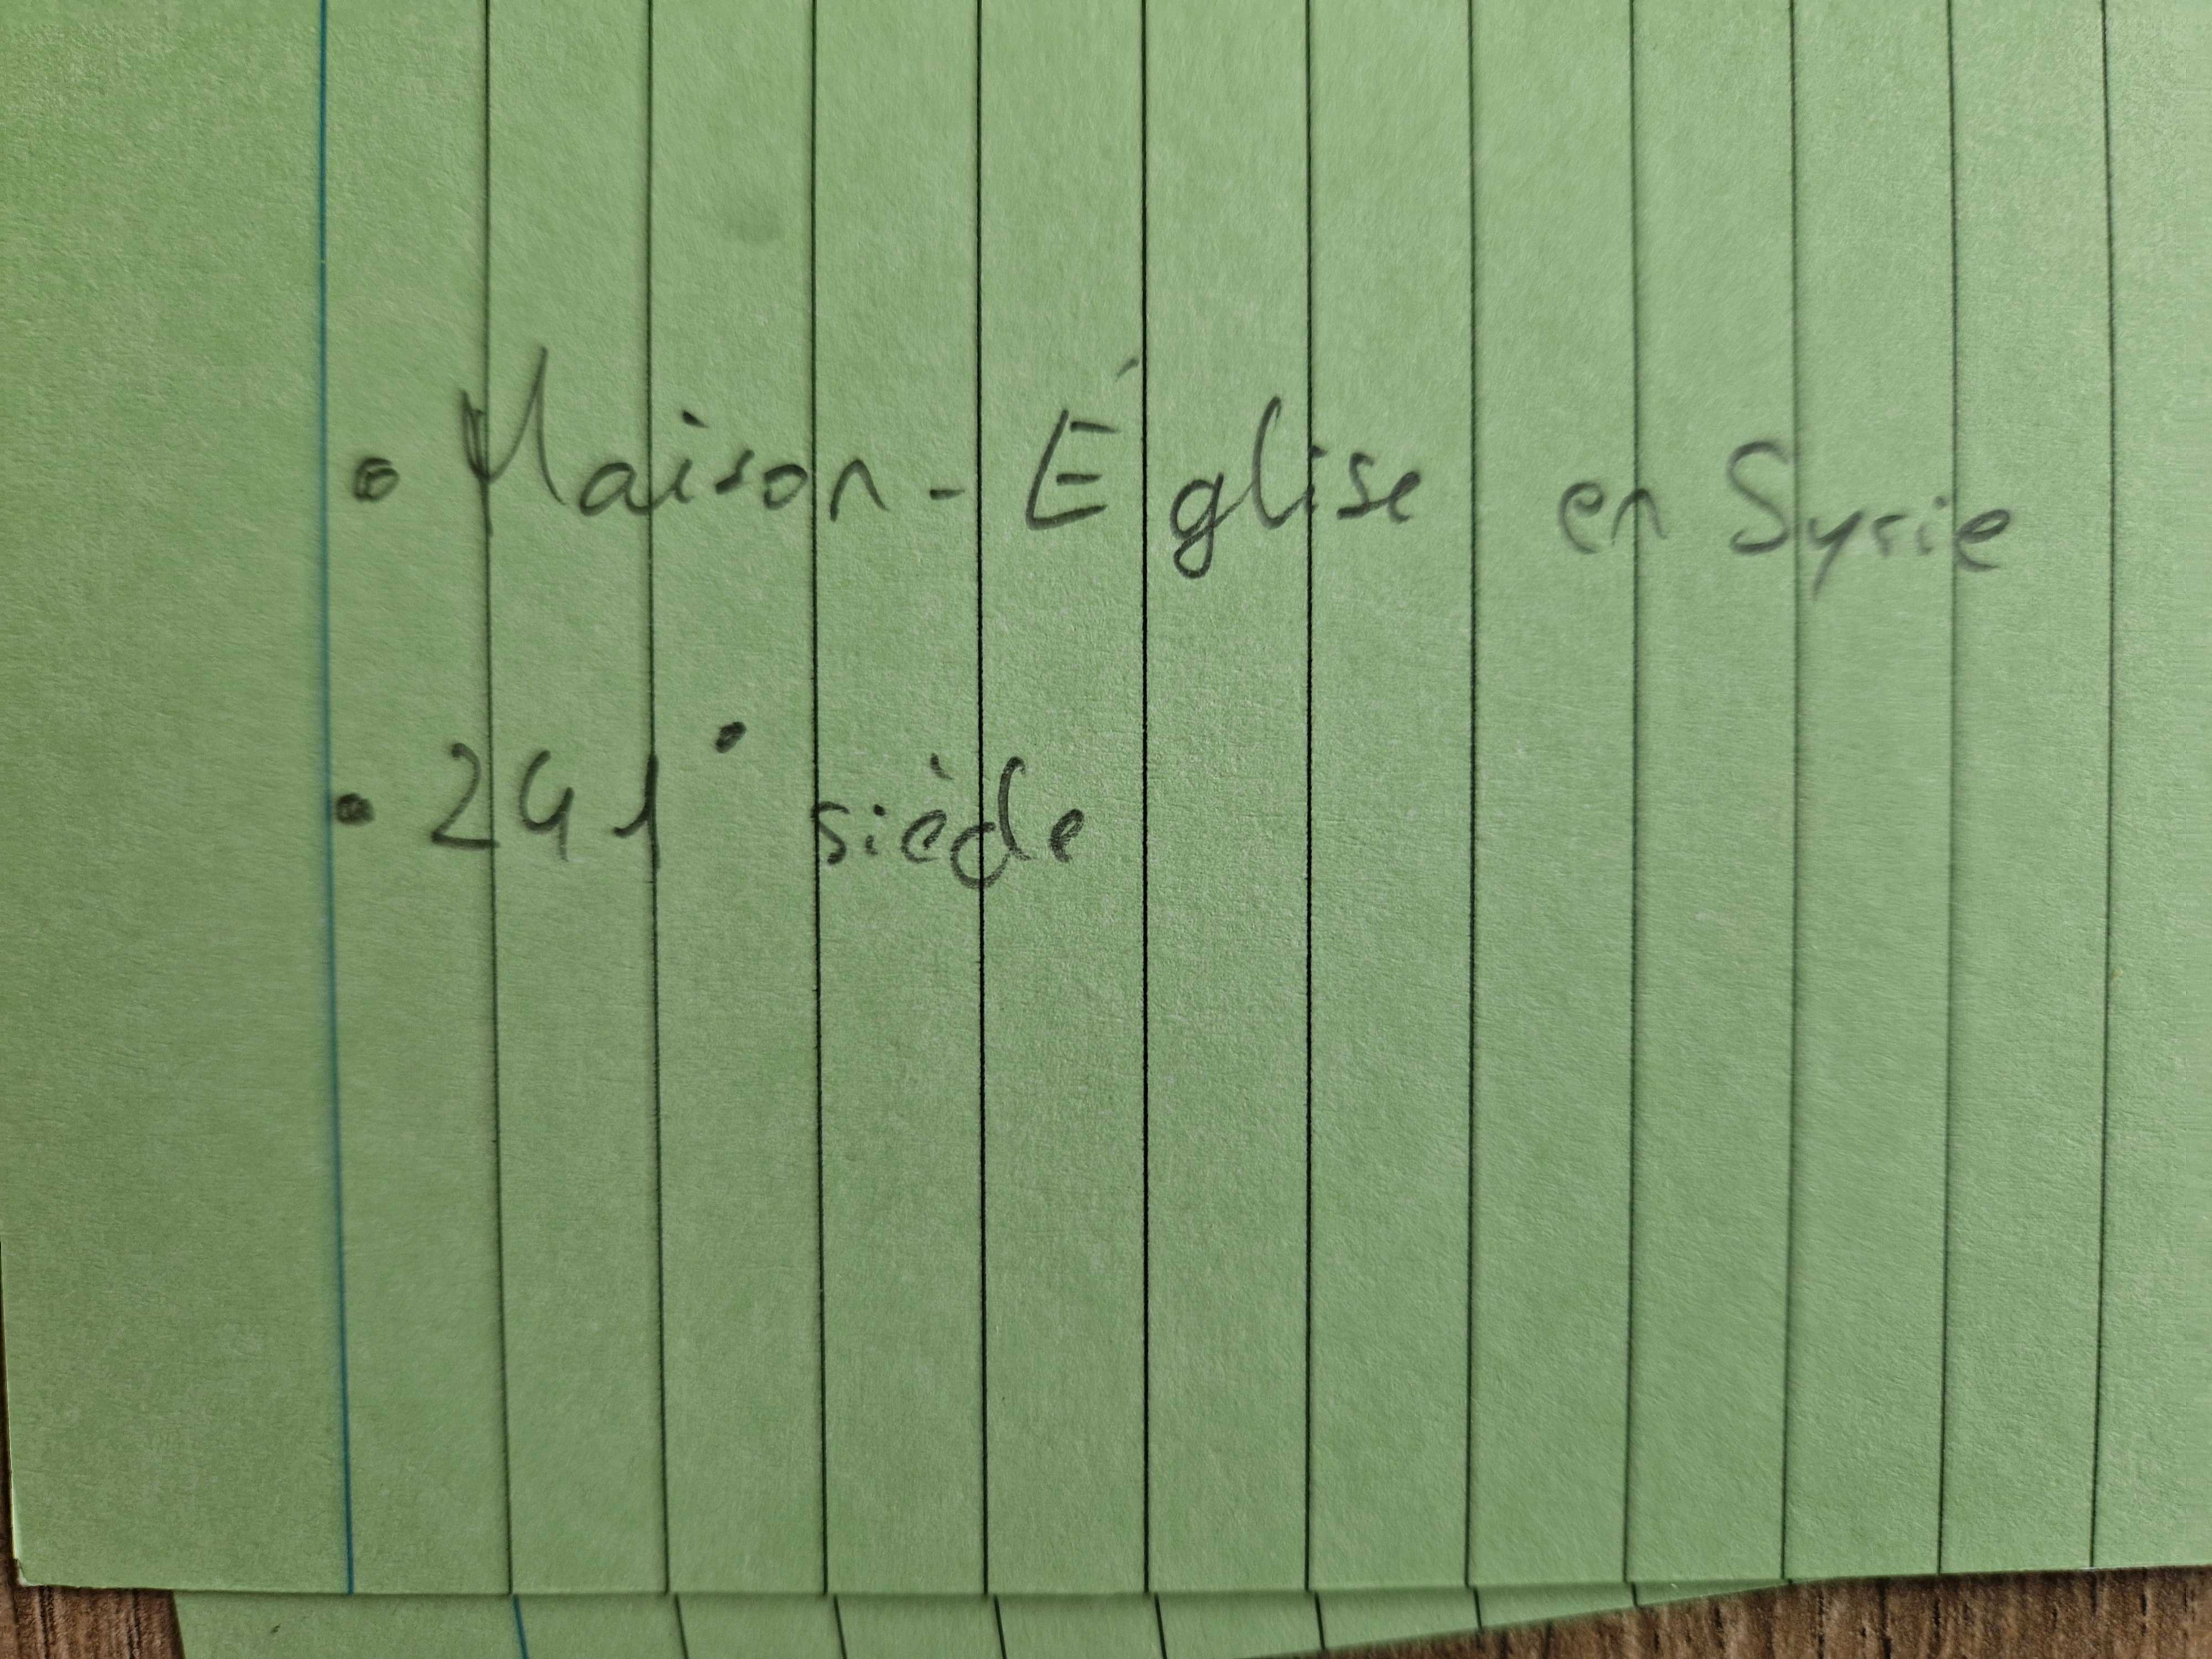 • Maison-Église en Syrie
• 241° siècle